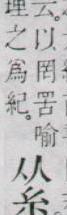 云。以罔罟喻
理之為紀。
从糸